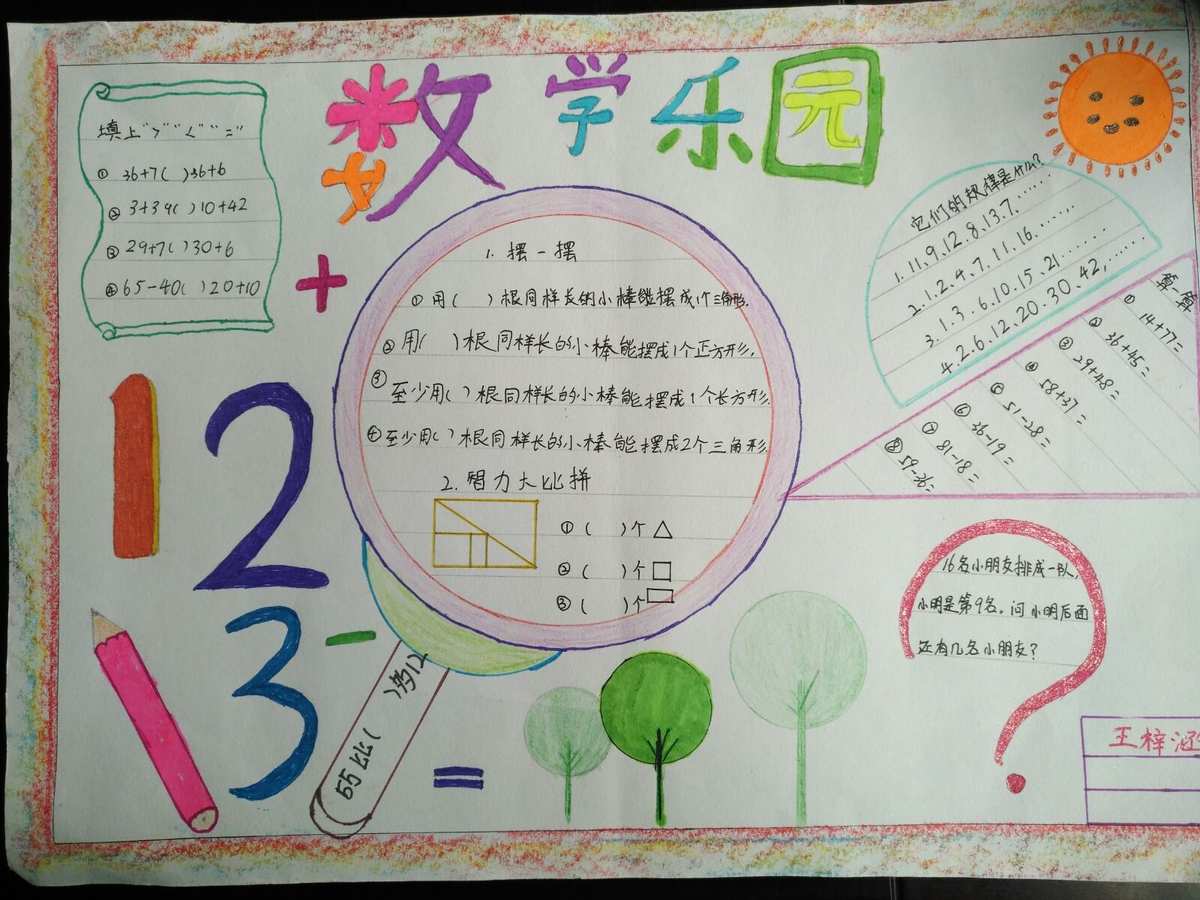 数学乐园
填上“>”“<”“=”
① 36+7( )36+6
② 3+39( )10+42
③ 29+7( )30+6
④ 65-40( )20+10
1. 摆一摆
① 用( )根同样长的小棒能摆成1个三角形.
② 用( )根同样长的小棒能摆成1个正方形.
③ 至少用( )根同样长的小棒能摆成1个长方形.
④ 至少用( )根同样长的小棒能摆成2个三角形.
2. 智力大比拼
① ( )个△
② ( )个□
③ ( )个▭
55比( )多12
它们的规律是什么?
1. 11、9、12、8、13、7、……
2. 1、2、4、7、11、16、……
3. 1、3、6、10、15、21……
4. 2、6、12、20、30、42,……
算一算
① 14+77=
② 36+45=
③ 29+48=
④ 58+37=
⑤ 51-28=
⑥ 36-19=
⑦ 81-18=
⑧ 59-36=
16名小朋友排成一队,
小明是第9名。问小明后面
还有几名小朋友?
1 2
3
+
-
=
王梓涵